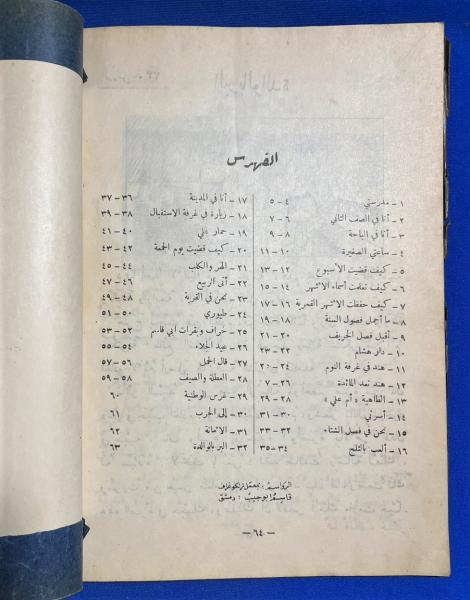 الفهرس
١ - مدرستي ٤ - ٥
٢ - أنا في الصف الثاني ٦ - ٧
٣ - أنا في الباحة ٨ - ٩
٤ - ساعتي الصغيرة ١٠ - ١١
٥ - كيف قضيت الأسبوع ١٢ - ١٣
٦ - كيف تعلمت أسماء الأشهر ١٤ - ١٥
٧ - كيف حفظت الأشهر القمرية ١٦ - ١٧
٨ - ما أجمل فصول السنة ١٨ - ١٩
٩ - أقبل فصل الخريف ٢٠ - ٢١
١٠ - دار هشام ٢٢ - ٢٣
١١ - هند في غرفة النوم ٢٤ - ٢٠
١٢ - هند تعد المائدة ٢٦ - ٧
١٣ - الطاهية « أم علي » ٢٨ - ٢٩
١٤ - أسرتي ٣٠ - ٣١
١٥ - نحن في فصل الشتاء ٣٢ - ٣٣
١٦ - ألعب بالثلج ٣٤ - ٣٥
١٧ - أنا في المدينة ٣٦ - ٣٧
١٨ - زيارة في غرفة الاستقبال ٣٨ - ٣٩
١٩ - حمار ٤٠ - ٤١
٢٠ - كيف قضيت يوم الجمعة ٤٢ - ٤٣
٢١ - الهر والكلب ٤٤ - ٤٥
٢٢ - أتى الربيع ٤٦ - ٤٧
٢٣ - نحن في القرية ٤٨ - ٤٩
٢٤ - طيوري ٥٠ - ٥١
٢٥ - خراف وبقرات ابي قاسم ٥٢ - ٥٣
٢٦ - عيد الجلاء ٥٤ - ٥٥
٢٧ - قال الجمل ٥٦ - ٥٧
٢٨ - العطلة والصيف ٥٨ - ٥٩
٢٩ - غرس الوطنية ٦٠
٣٠ - إلى الحرب ٦١
٣١ - الأمانة ٦٢
٣٢ - البر بالوالدة ٦٣
الرواسم : بمعمل تزنكوغراف
قاسم بوجيب : دمشق
- ٦٤ -